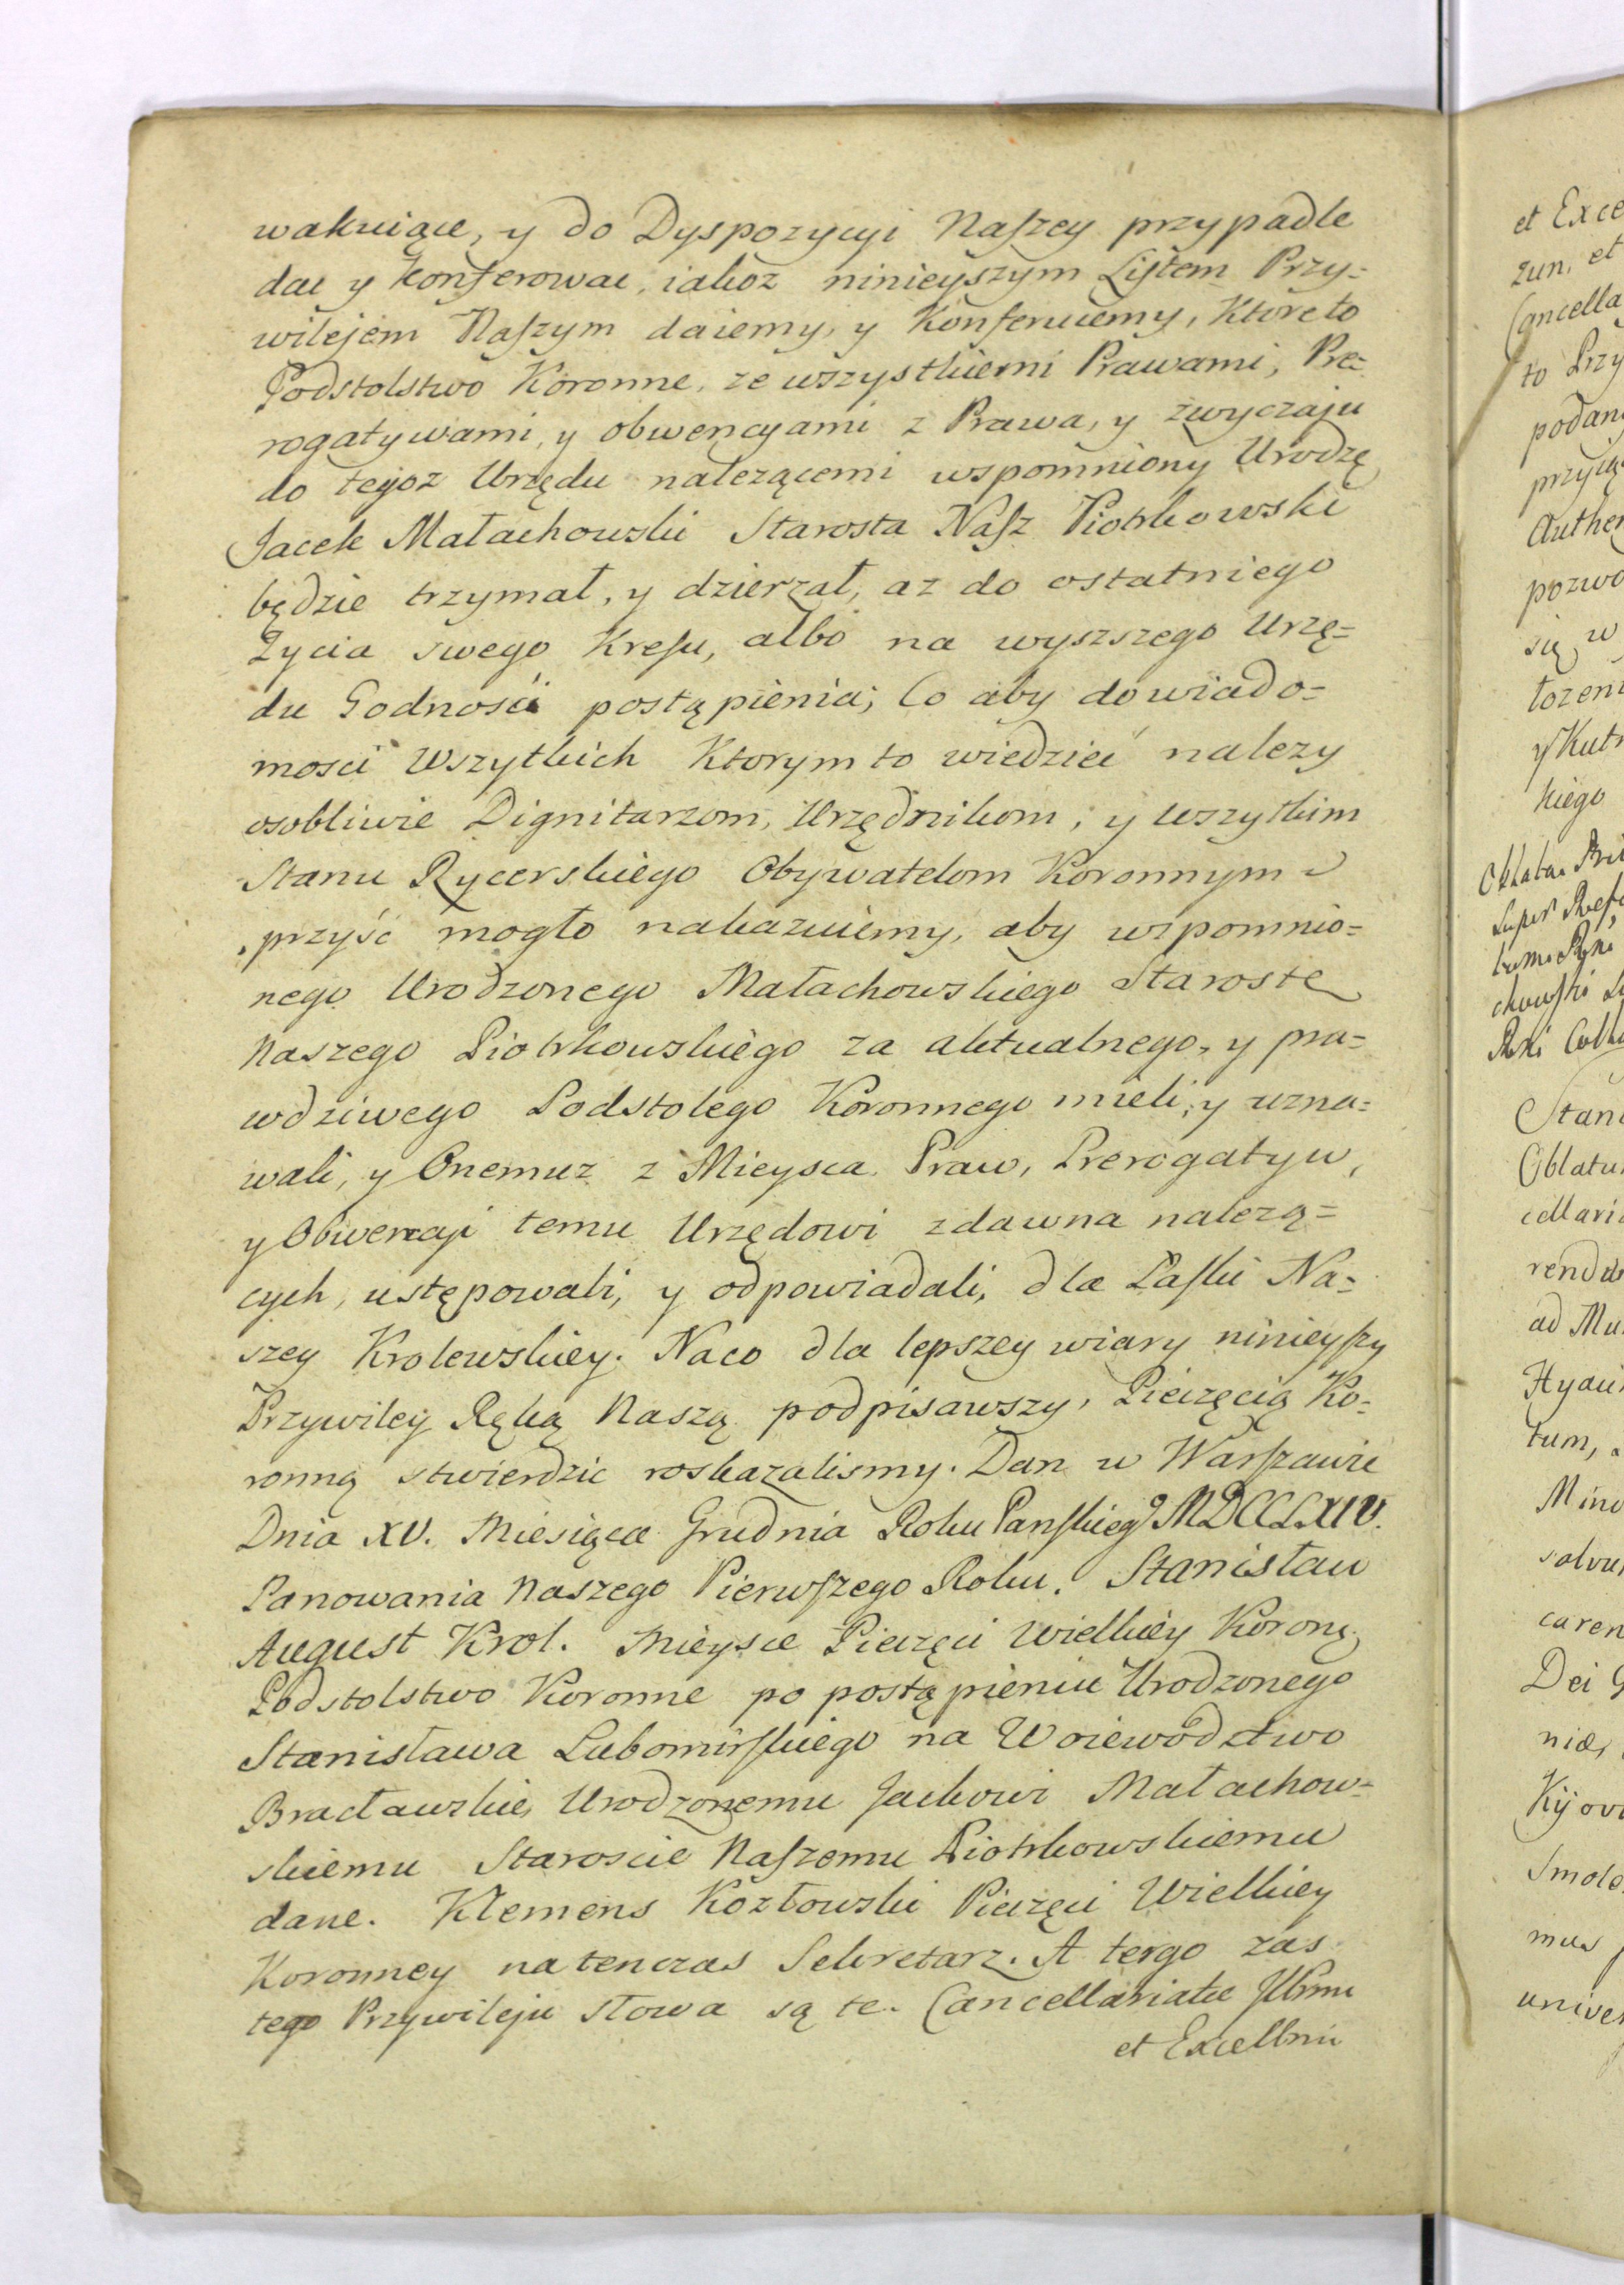 wakuiące, y do Dyspozycyi Naszey przypadłe
dac y konferowac, iakoz ninieyszym Listem Przy=
wilejem Naszym daiemy, y Konferuiemy, Ktore to
Podstolstwo Koronne, ze wszystkiemi Prawami, Pre=
rogatywami, y obwencyami z Prawa, y zwyczaju
do tegoz Urzędu nalezącemi wspomniony Urodzę
Jacek Małachowski Starosta Nasz Piotrkowski
będzie trzymał, y dzierzał, az do ostatniego
Zycia swego Kresu, albo na wyszszego Urzę=
du Godnosci postąpienia; Co aby dowiado=
mosci Wszytkich Ktorym to wiedzieć nalezy
osobliwie Dignitarzom, Urzędnikom, y wszytkim
Stanu Rycerskiego Obywatelom Koronnym
przyść mogło nakazuiemy, aby wspomnio=
nego Urodzonego Małachowskiego Starostę
Naszego Piotrkowskiego za aktualnego, y pra=
wdziwego Podstolego Koronnego mieli, y uzna=
wali, y Onemuz z Mieysca Praw, Prerogatyw,
y Obwencyi temu Urzędowi zdawna nalezą=
cych, ustępowali, y odpowiadali, dla Łaski Na=
szey Krolewskiey. Naco dla lepszey wiary ninieyszy
Przywiley Ręką Naszą podpisawszy, Pieczęcią Ko=
ronną stwierdzic roskazalismy. Dan w Warszawie
Dnia XV. Miesiąca Grudnia Roku Panskieg° MDCCLXIV.
Panowania Naszego Pierwszego Roku. Stanisław
August Krol. Mieysce Pieczęci Wielkiey Koroną.
Podstolstwo Koronne po postąpieniu Urodzonego
Stanisława Lubomirskiego na Woiewództwo
Bracławskie, Urodzonemu Jackowi Małachow=
skiemu Staroscie Naszemu Piotrkowskiemu
dane. Klemens Kozłowski Pieczęci Wielkiey
Koronney na tenczas Sekretarz. A tergo zas
tego Przywileju słowa są te. Cancellariatu Illrmi
et Excellmi
et Exce
zun, et
Cancella
to Przy
podan
przyię
Authen
pozwo
się w
łozeni
y Kutn
kiego
Stani
Oblatu
cellaria
ad Mu
tum,
Mino
salvu
caren
Dei G
niæ,
Kijov
Smole
mus
univer